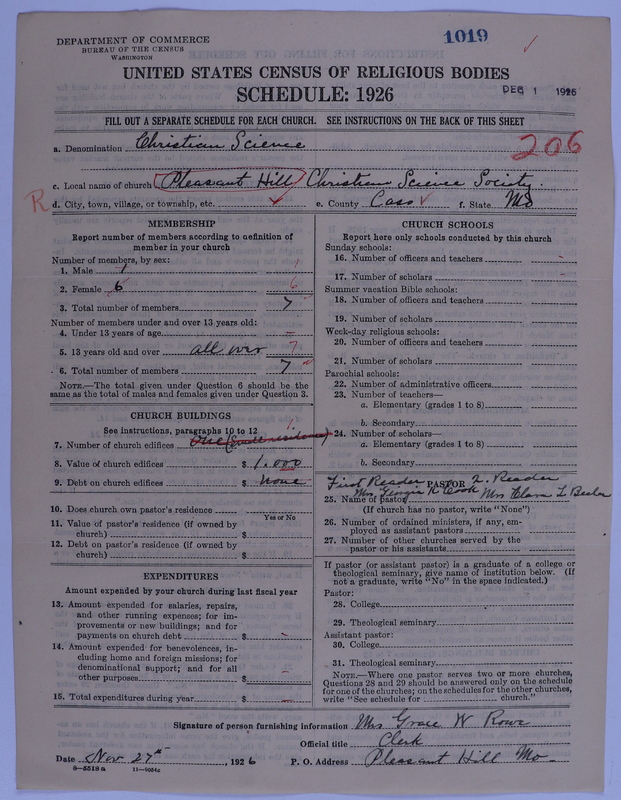 DEPARTMENT OF COMMERCE
BUREAU OF THE CENSUS
WASHINGTON
1019
UNITED STATES CENSUS OF RELIGIOUS BODIES
SCHEDULE: 1926
DEC 1 1926
FILL OUT A SEPARATE SCHEDULE FOR EACH CHURCH. SEE INSTRUCTIONS ON THE BACK OF THIS SHEET
a. Denomination Christian Science
206
c. Local name of church Pleasant Hill Christian Science Society.
R
d. City, town, village, or township, etc. e. County Cass f. State Mo
MEMBERSHIP
Report number of members according to definition of
member in your church
Number of members, by sex:
1. Male 1 1
2. Female 6 6
3. Total number of members 7
Number of members under and over 13 years old:
4. Under 13 years of age –
5. 13 years old and over all over 7
6. Total number of members 7
NOTE.—The total given under Question 6 should be the
same as the total of males and females given under Question 3.
CHURCH BUILDINGS
See instructions, paragraphs 10 to 12
7. Number of church edifices One (Small residence) 1
8. Value of church edifices $ 1,000
9. Debt on church edifices $ none
10. Does church own pastor's residence
Yes or No
11. Value of pastor's residence (if owned by
church) $
12. Debt on pastor's residence (if owned by
church) $
EXPENDITURES
Amount expended by your church during last fiscal year
13. Amount expended for salaries, repairs,
and other running expenses; for im-
provements or new buildings; and for
payments on church debt $ –
14. Amount expended for benevolences, in-
cluding home and foreign missions; for
denominational support; and for all
other purposes $ –
15. Total expenditures during year $ –
CHURCH SCHOOLS
Report here only schools conducted by this church
Sunday schools:
16. Number of officers and teachers –
17. Number of scholars –
Summer vacation Bible schools:
18. Number of officers and teachers
19. Number of scholars
Week-day religious schools:
20. Number of officers and teachers
21. Number of scholars
Parochial schools:
22. Number of administrative officers
23. Number of teachers—
a. Elementary (grades 1 to 8)
b. Secondary
24. Number of scholars—
a. Elementary (grades 1 to 8)
b. Secondary
First Reader PASTOR 2. Reader
25. Name of pastor Mrs. Georgia R. Cook Mrs Clara L
(If church has no pastor, write "None")
26. Number of ordained ministers, if any, em-
ployed as assistant pastors
27. Number of other churches served by the
pastor or his assistants
If pastor (or assistant pastor) is a graduate of a college or
theological seminary, give name of institution below. (If
not a graduate, write "No" in the space indicated.)
Pastor:
28. College
29. Theological seminary
Assistant pastor:
30. College
31. Theological seminary
NOTE.—Where one pastor serves two or more churches,
Questions 28 and 29 should be answered only on the schedule
for one of the churches; on the schedules for the other churches,
write "See schedule for church."
Signature of person furnishing information Mrs Grace W Rowe
Official title Clerk
Date Nov 27th, 1926 P. O. Address Pleasant Hill Mo
8—5518a 11—9054c